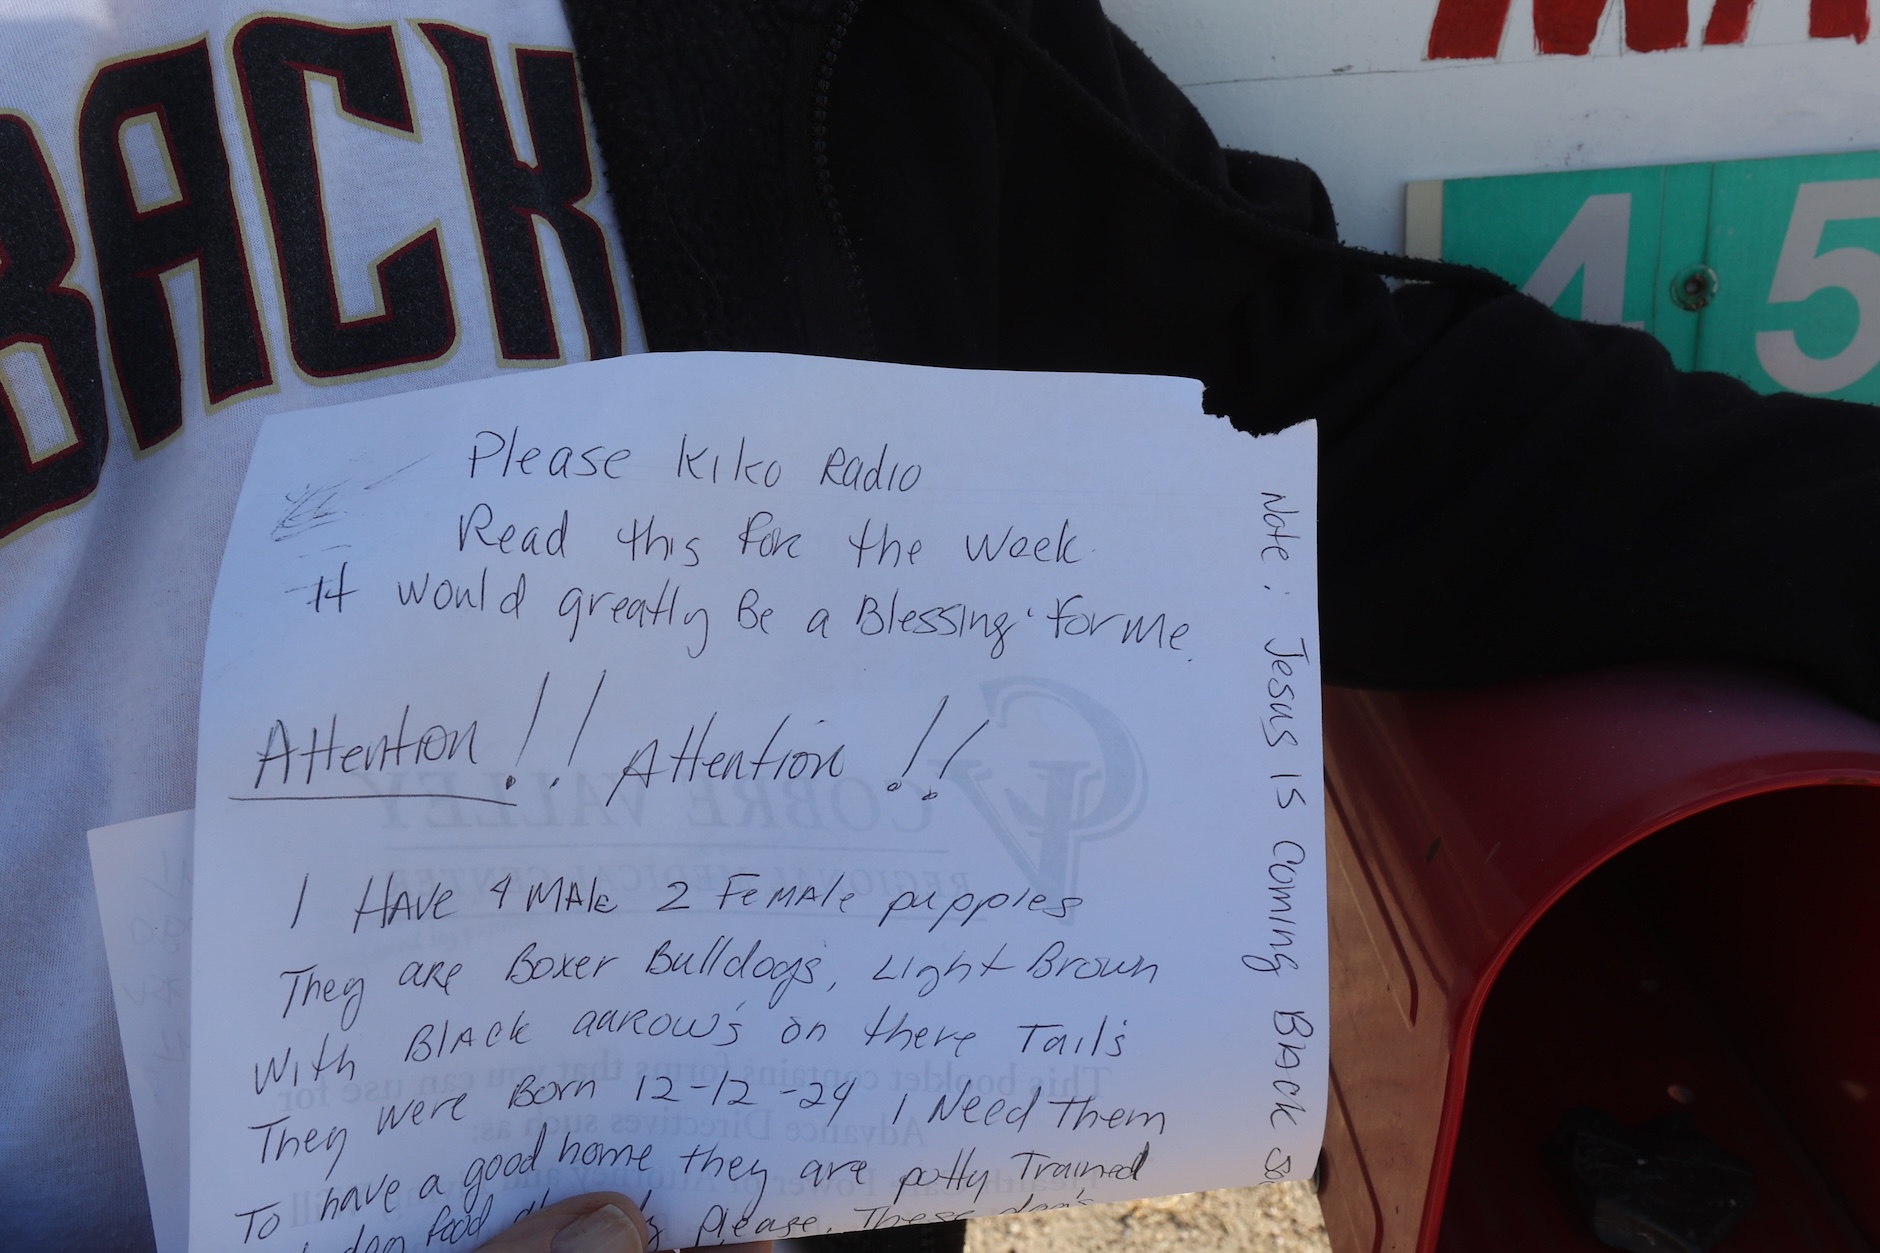 BACK
45
Please Kiko Radio
Read this for the week.
It would greatly Be a Blessing for me.
Attention!! Attention!!
I HAVE 4 MAle 2 FeMAle puppies
They are Boxer Bulldog's, Light Brown
With BLAck aarow's on there Tail's
They were Born 12-12-24 I Need Them
To have a good home they are potty Trained
dog food please. These dog's
Note: Jesus Is Coming BAck
COBRE VALLEY
REGIONAL MEDICAL CENTER
This booklet contains forms that you can use for
Advance Directives such as: